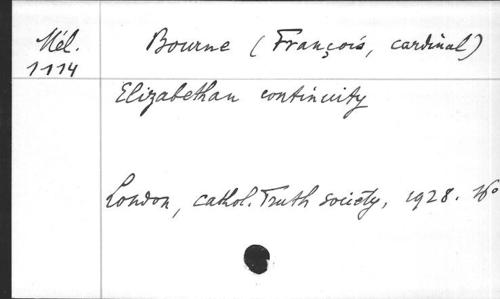 Mél. Bourne (François, cardinal)
1114
Elizabethan continuity
London, cathol. Truth society, 1928. 16°